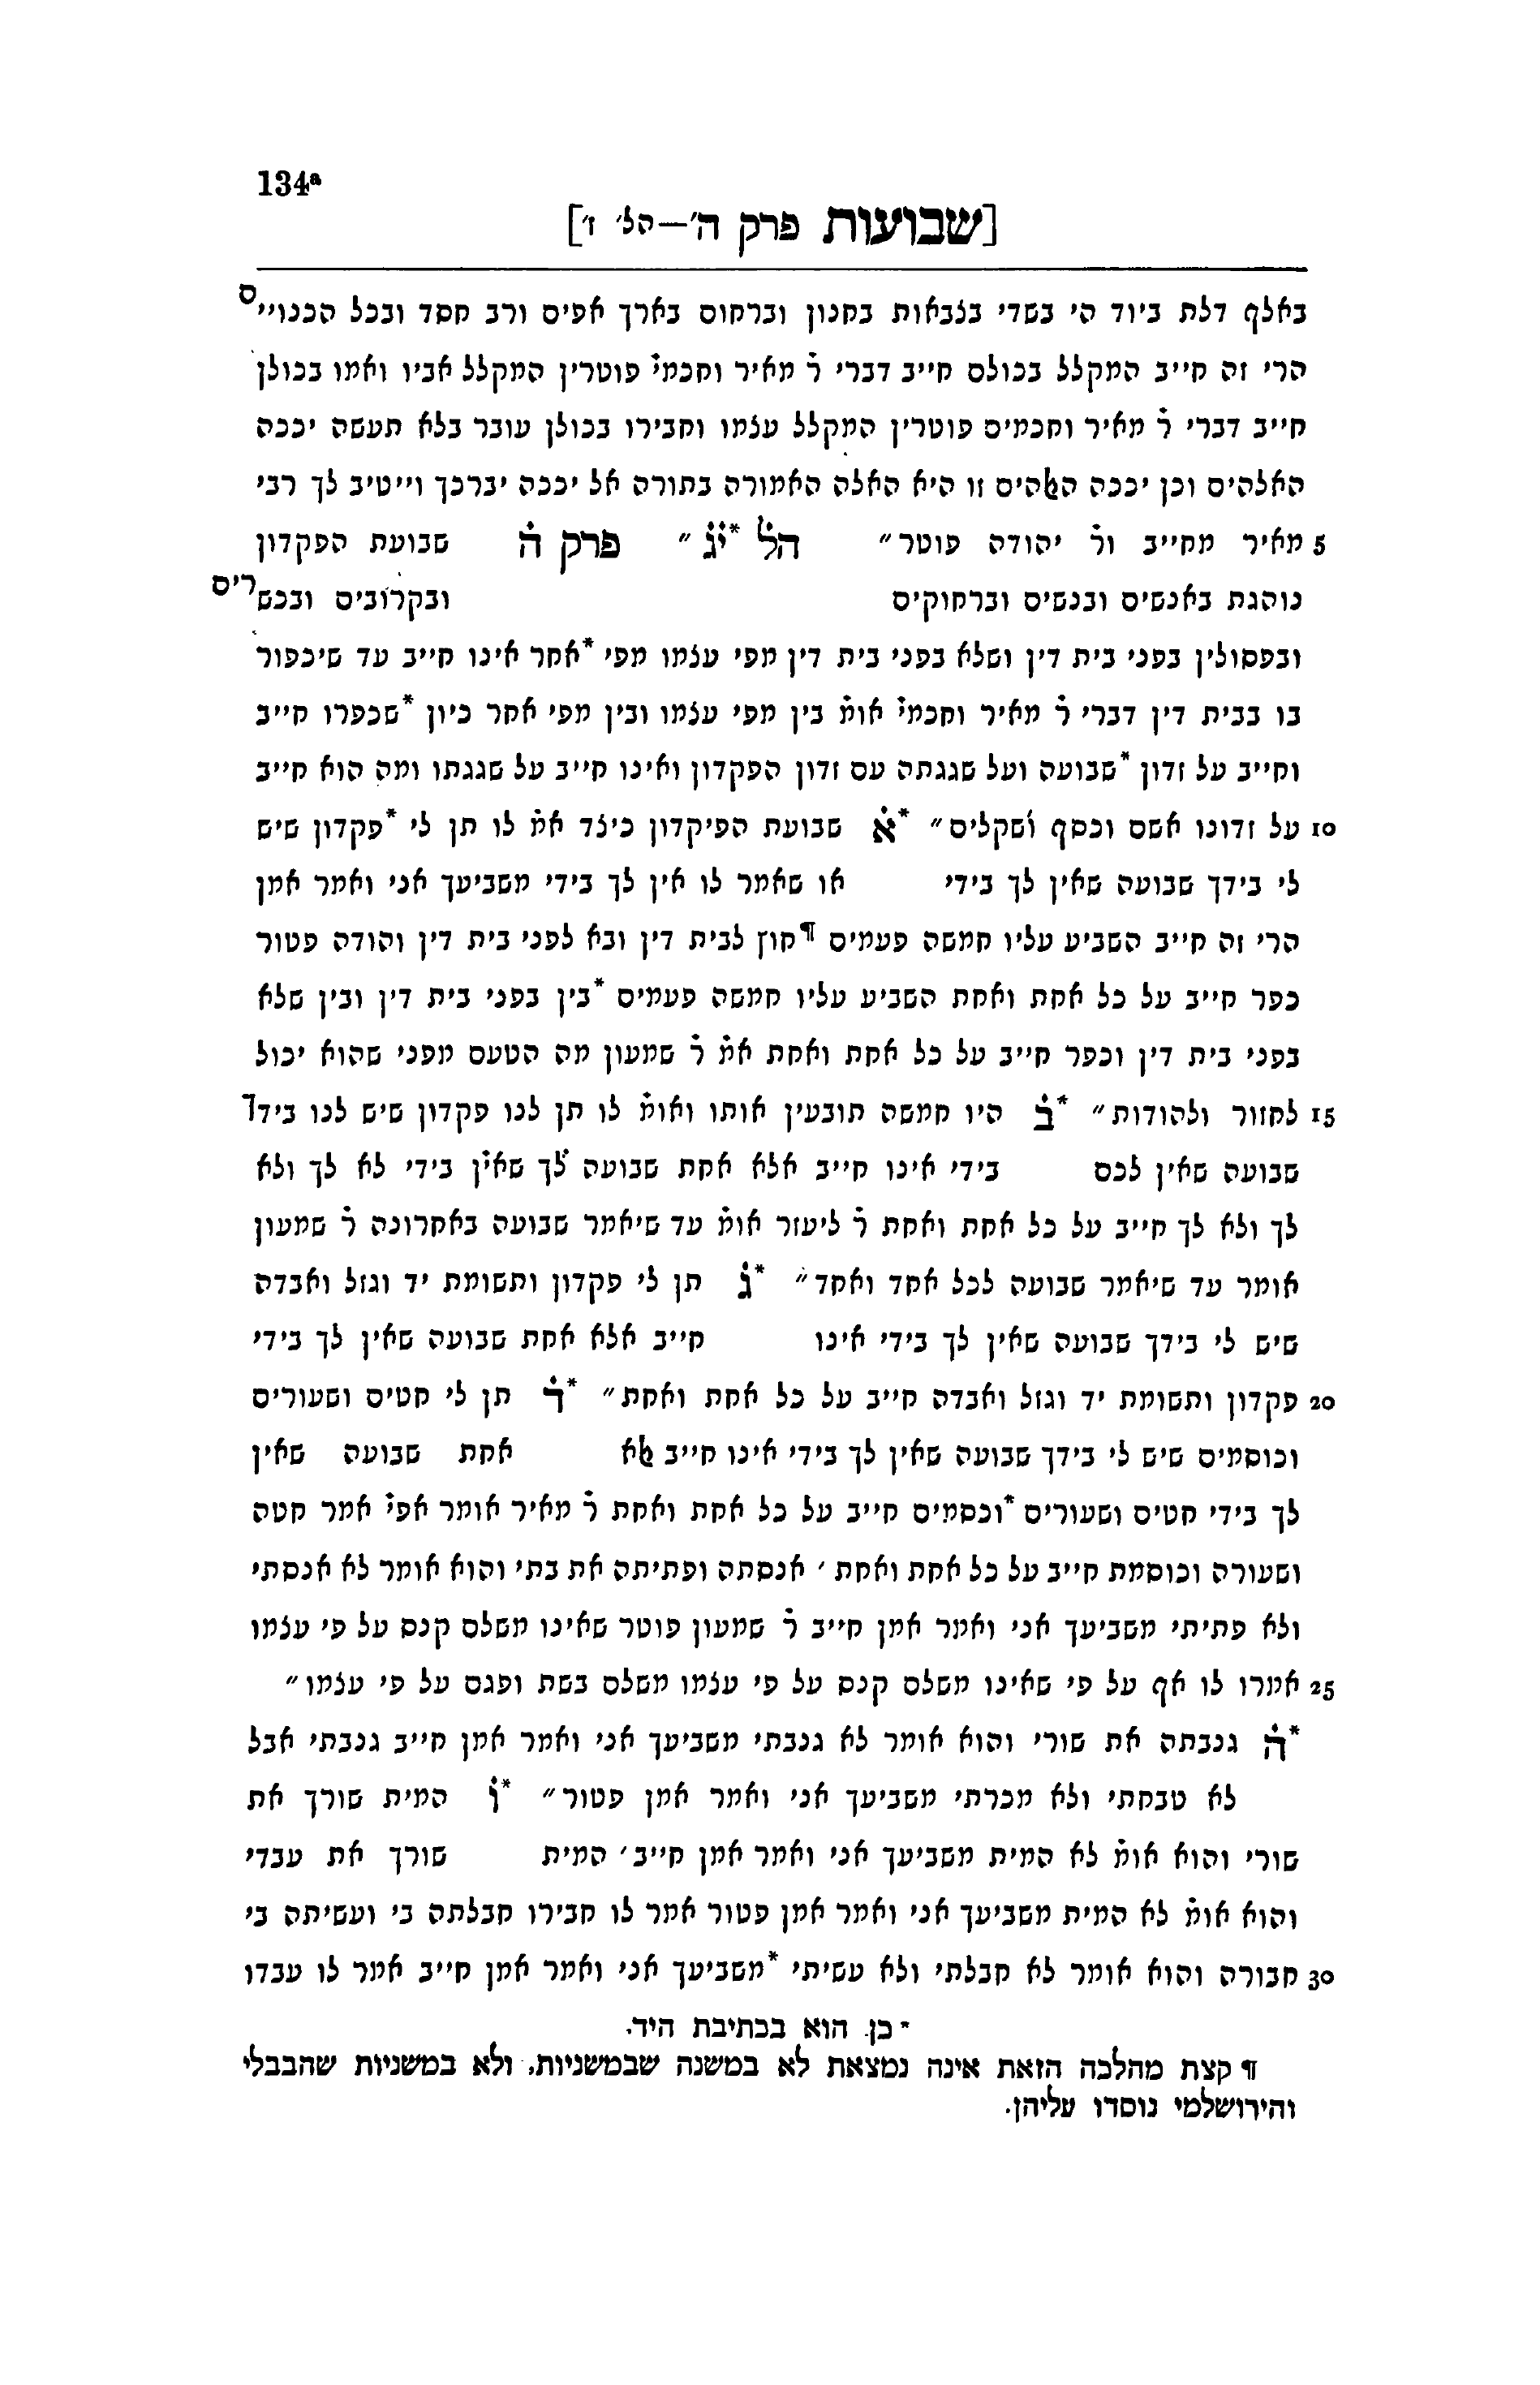 134ª
[שבועות פרק ה'—הל' ז']
באלף דלת ביוד הי בשדי בצבאות בחנון וברחום בארך אפים ורב חסד ובכל הכנויים
הרי זה חייב המקלל בכולם חייב דברי ר̇ מאיר וחכמי̇ פוטרין המקלל אביו ואמו בכולן
חייב דברי ר̇ מאיר וחכמים פוטרין המקלל עצמו וחבירו בכולן עובר בלא תעשה יככה
האלהים וכן יככה האלהים זו היא האלה האמורה בתורה אל יככה יברכך וייטיב לך רבי
5 מאיר מחייב ור̇ יהודה פוטר״ הל̇ *י̇ג̇ ״ פרק ה̇ שבועת הפקדון
נוהגת באנשים ובנשים וברחוקים ובקרובים ובכשרים
ובפסולין בפני בית דין ושלא בפני בית דין מפי עצמו מפי *אחר אינו חייב עד שיכפור
בו בבית דין דברי ר̇ מאיר וחכמי̇ אומ̇ בין מפי עצמו ובין מפי אחר כיון *שכפרו חייב
וחייב על זדון *שבועה ועל שגגתה עם זדון הפקדון ואינו חייב על שגגתו ומה הוא חייב
10 על זדונו אשם וכסף ושקלים״ *א̇ שבועת הפיקדון כיצד אמ̇ לו תן לי *פקדון שיש
לי בידך שבועה שאין לך בידי או שאמר לו אין לך בידי משביעך אני ואמר אמן
הרי זה חייב השביע עליו חמשה פעמים ¶חוץ לבית דין ובא לפני בית דין והודה פטור
כפר חייב על כל אחת ואחת השביע עליו חמשה פעמים *בין בפני בית דין ובין שלא
בפני בית דין וכפר חייב על כל אחת ואחת אמ̇ ר̇ שמעון מה הטעם מפני שהוא יכול
15 לחזור ולהודות״ *ב̇ היו חמשה תובעין אותו ואומ̇ לו תן לנו פקדון שיש לנו בידך
שבועה שאין לכם בידי אינו חייב אלא אחת שבועה לך שאין בידי לא לך ולא
לך ולא לך חייב על כל אחת ואחת ר̇ ליעזר אומ̇ עד שיאמר שבועה באחרונה ר̇ שמעון
אומר עד שיאמר שבועה לכל אחד ואחד״ *ג̇ תן לי פקדון ותשומת יד וגזל ואבדה
שיש לי בידך שבועה שאין לך בידי אינו חייב אלא אחת שבועה שאין לך בידי
20 פקדון ותשומת יד וגזל ואבדה חייב על כל אחת ואחת״ *ד̇ תן לי חטים ושעורים
וכוסמים שיש לי בידך שבועה שאין לך בידי אינו חייב אלא אחת שבועה שאין
לך בידי חטים ושעורים *וכסמים חייב על כל אחת ואחת ר̇ מאיר אומר אפי̇ אמר חטה
ושעורה וכוסמת חייב על כל אחת ואחת ׳ אנסתה ופתיתה את בתי והוא אומר לא אנסתי
ולא פתיתי משביעך אני ואמר אמן חייב ר̇ שמעון פוטר שאינו משלם קנס על פי עצמו
25 אמרו לו אף על פי שאינו משלם קנס על פי עצמו משלם בשת ופגם על פי עצמו״
*ה̇ גנבתה את שורי והוא אומר לא גנבתי משביעך אני ואמר אמן חייב גנבתי אבל
לא טבחתי ולא מכרתי משביעך אני ואמר אמן פטור״ *ו̇ המית שורך את
שורי והוא אומ̇ לא המית משביעך אני ואמר אמן חייב׳ המית שורך את עבדי
והוא אומ̇ לא המית משביעך אני ואמר אמן פטור אמר לו חבירו חבלתה בי ועשיתה בי
30 חבורה והוא אומר לא חבלתי ולא עשיתי *משביעך אני ואמר אמן חייב אמר לו עבדו
* כן הוא בכתיבת היד.
¶ קצת מהלכה הזאת אינה נמצאת לא במשנה שבמשניות, ולא במשניות שהבבלי
והירושלמי נוסדו עליהן.